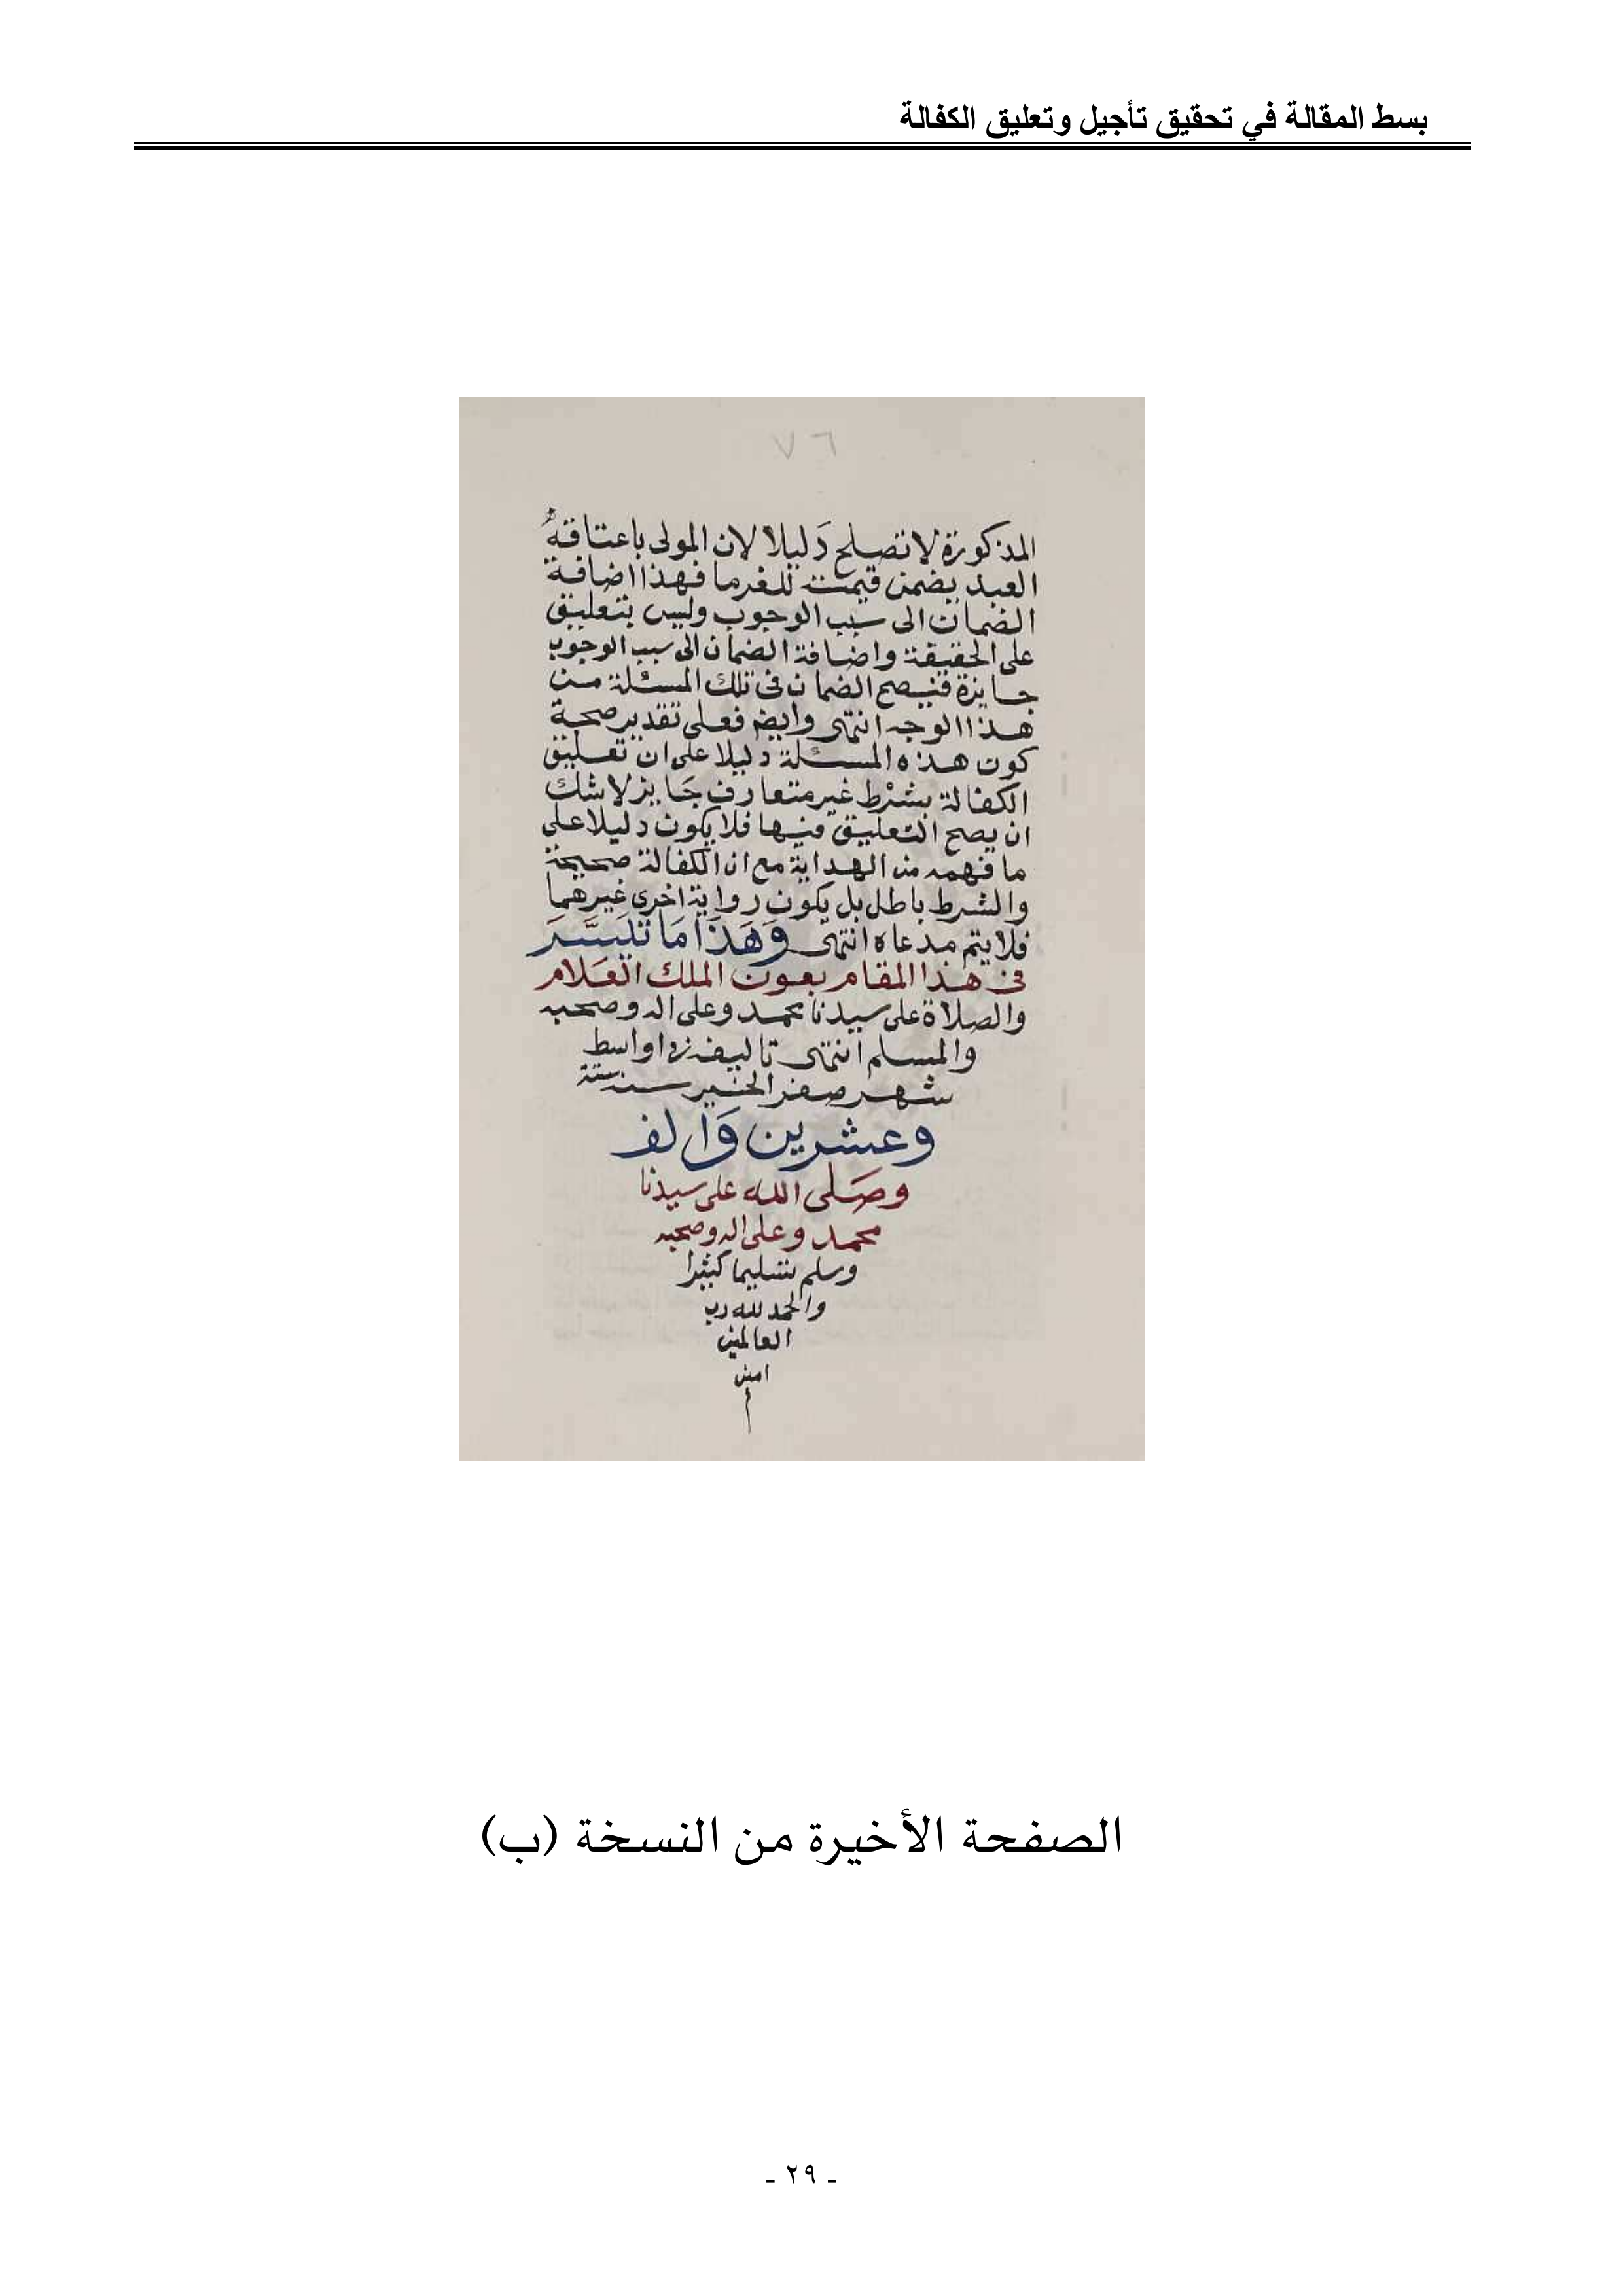 بسط المقالة في تحقيق تأجيل وتعليق الكفالة
٧٦
المذكورة لا تصلح دَليلا لان المولى باعتاقهُ
العبد يضمن قيمته للغرما فهذا اضافة
الضمان الى سبب الوجوب وليس بتعليق
على الحقيقة واضافة الضمان الى سبب الوجوب
جايزة فيصح الضمان فى تلك المسئلة من
هذا الوجه انتهى وايضم فعلى تقدير صحة
كون هذه المسئلة دليلا على ان تعليق
الكفالة بشرْط غير متعارف جَايز لا شك
ان يصح التعليق فيها فلا يكون دليلا على
ما فهمه من الهداية مع ان الكفالة صحيحة
والشرط باطل بل يكون رواية اخرى غيرهما
فلا يتم مدعاه انتهى وَهَذَا مَا تَيَسَّرَ
فى هذا المقام بعون الملك العَلام
والصلاة على سيدنا محمد وعلى اله وصحبه
والمسلم انتهى تاليفه فى اواسط
شهر صفر الخير سنة ستة
وعشرين وَالف
وصَلى الله على سيدنا
محمد وعلى اله وصحبه
وسلم تسليما كثيرا
والحمد لله رب
العالمين
امين
الصفحة الأخيرة من النسخة (ب)
- ٢٩ -